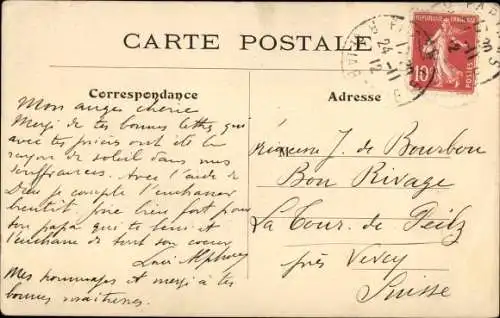 CARTE POSTALE
RÉPUBLIQUE FRANÇAISE
10
24 -11
12
Correspondance
Adresse
Mon ange chérie
Merci de tes bonnes lettres qui
avec tes prières ont été le
rayon de soleil dans mes
souffrances. Avec l'aide de
Dieu je compte
bientôt. Joie bien fort pour
ton papa qui te bénit et
de tout son coeur
Alphonse
Mes hommages et merci à tes
bonnes maitresses.
M J. de Bourbon
Bon Rivage
La Tour de Peilz
près Vevey
Suisse